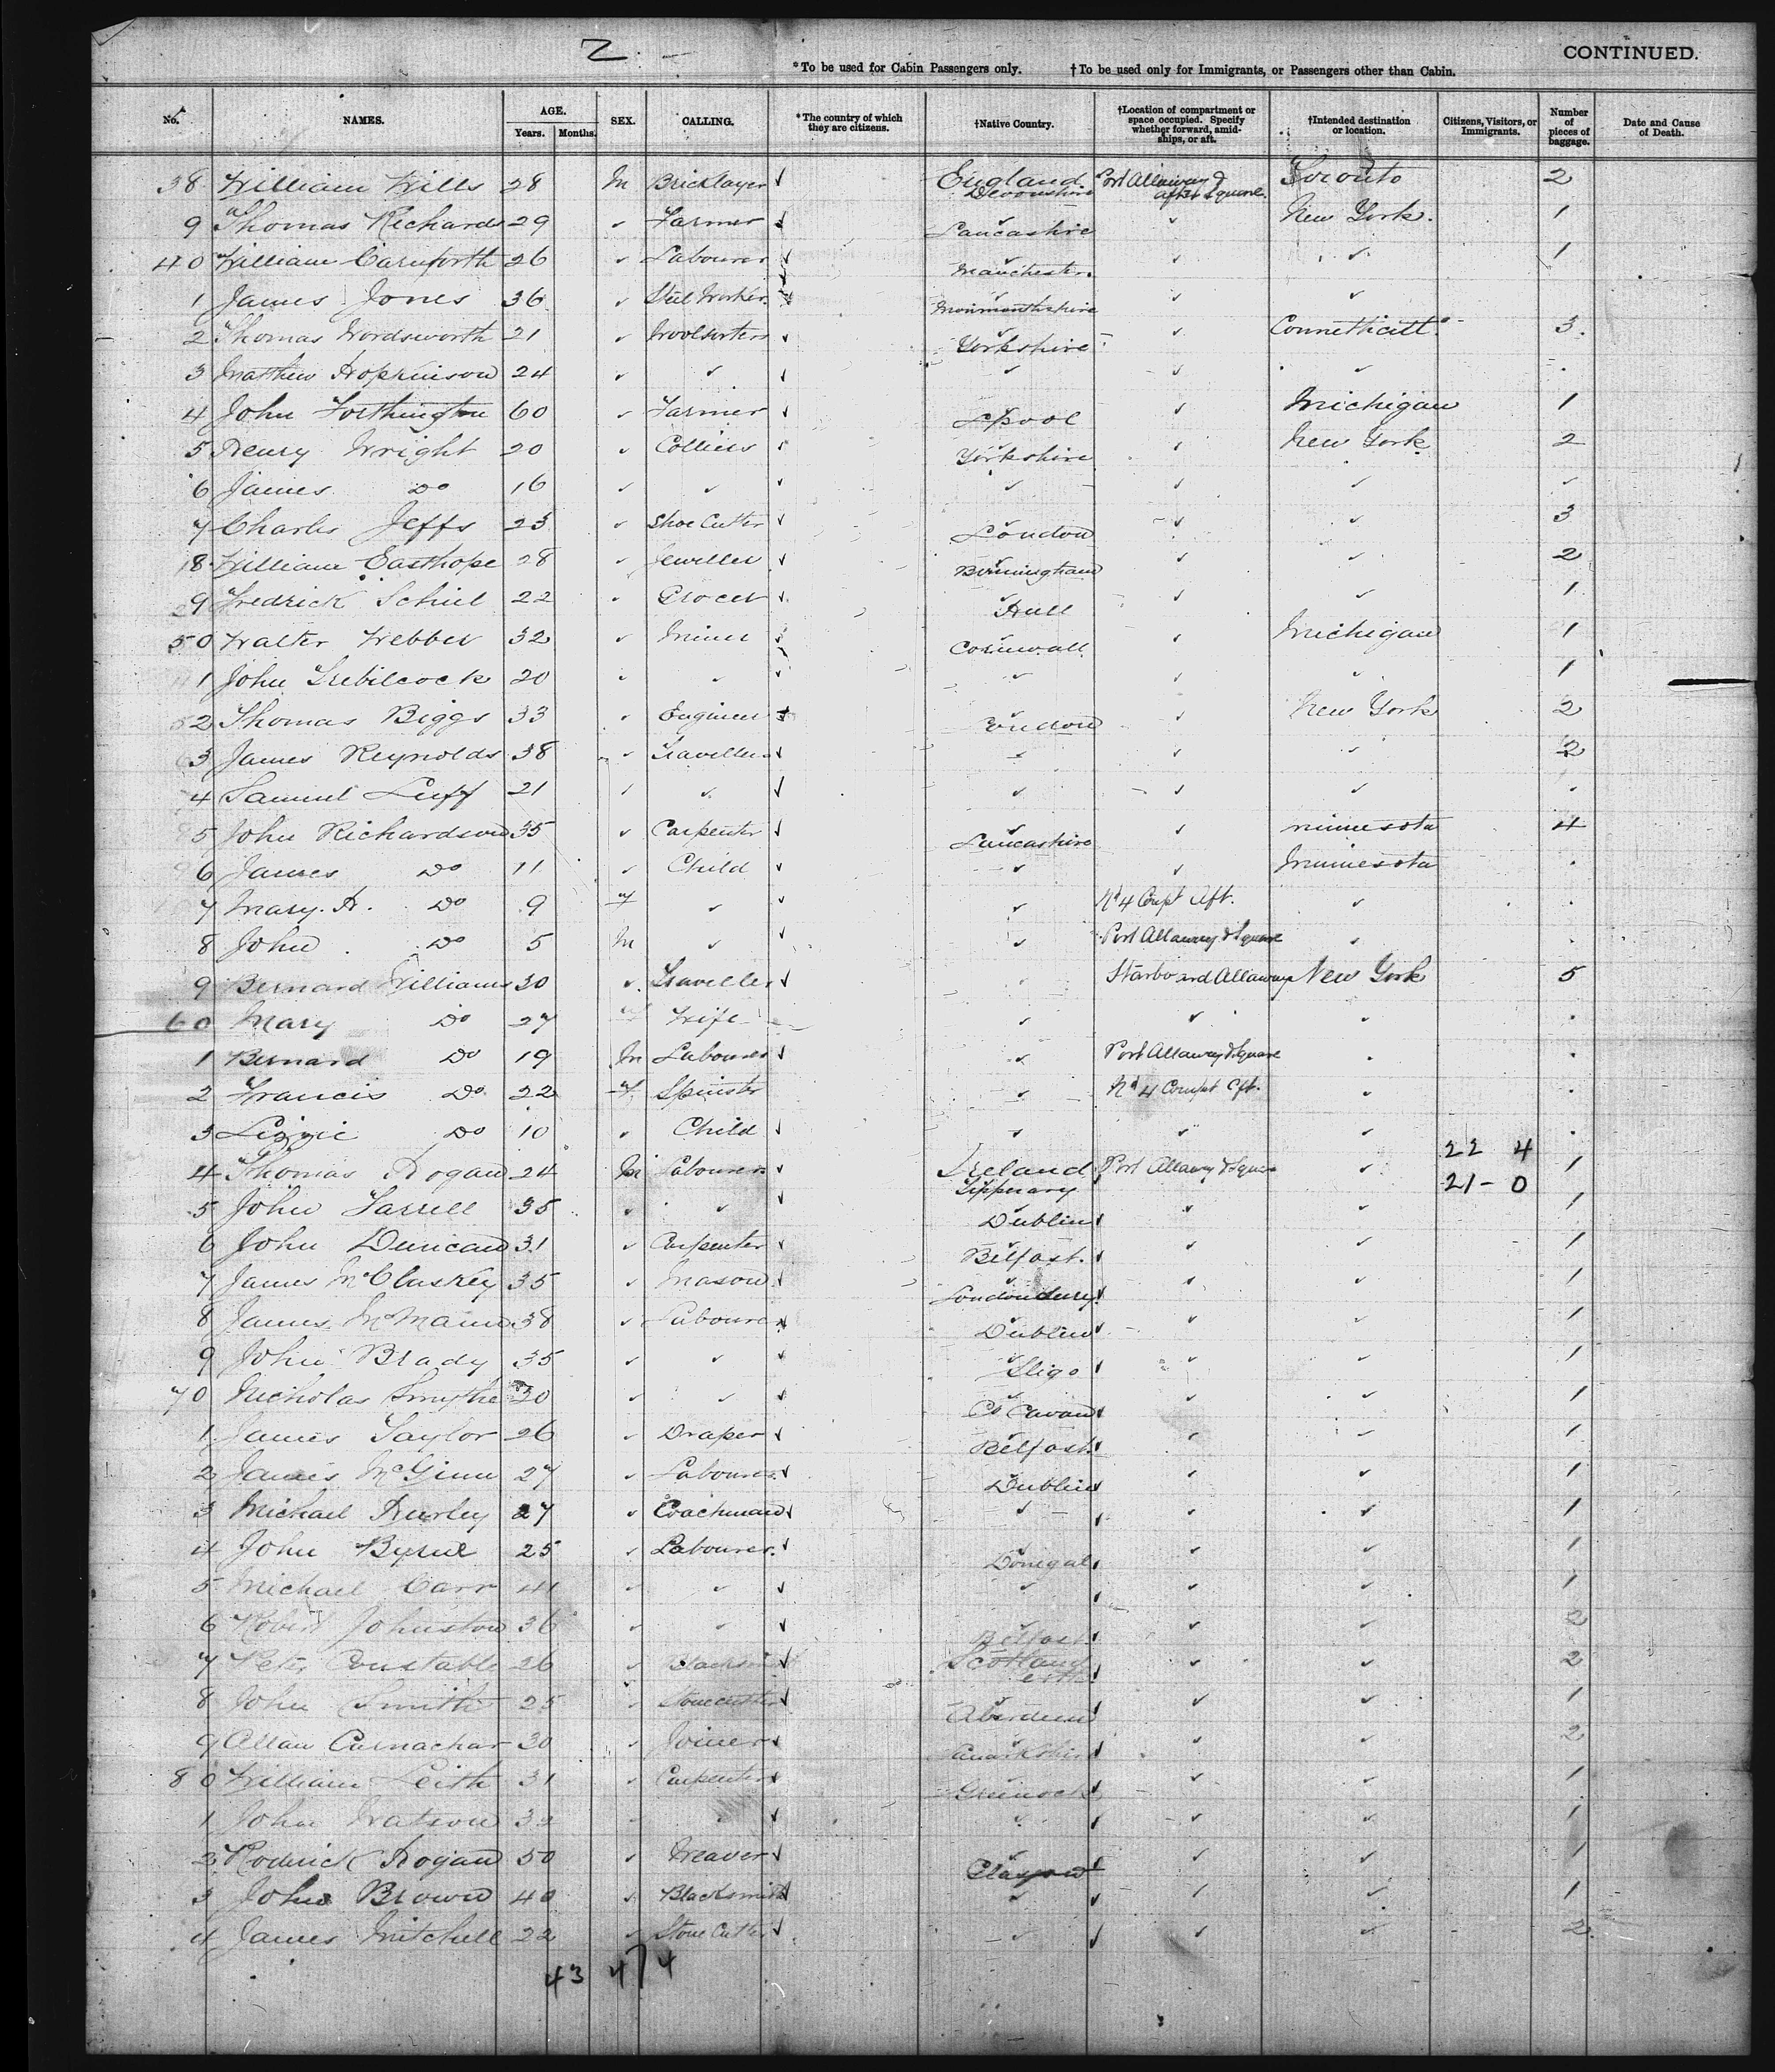 2
CONTINUED.
*To be used for Cabin Passengers only. †To be used only for Immigrants, or Passengers other than Cabin.
No. NAMES. AGE. Years. Months. SEX. CALLING. *The country of which they are citizens. †Native Country. †Location of compartment or space occupied. Specify whether forward, amidships, or aft. †Intended destination or location. Citizens, Visitors, or Immigrants. Number of pieces of baggage. Date and Cause of Death.
38 William Wills 28 M Bricklayer ✓ England Devonshire Port Allaway & after Square Toronto 2
9 Thomas Richards 29 ✓ Farmer ✓ Lancashire ✓ New York. 1
40 William Carnforth 26 ✓ Labourer ✓ Manchester ✓ ✓ 1
1 James Jones 36 ✓ Steel Worker Monmouthshire ✓ ✓
2 Thomas Wordsworth 21 ✓ Woolsorters ✓ Yorkshire ✓ Connethicutt 3
3 Matthew Hopkinson 24 ✓ ✓ ✓ ✓ ✓ ✓
4 John Worthington 60 ✓ Farmer ✓ Lpool ✓ Michigan 1
5 Henry Wright 20 ✓ Colliers ✓ Yorkshire ✓ New York 2
6 James Do 16 ✓ ✓ ✓ ✓ ✓ ✓ ✓
7 Charles Jeffs 23 ✓ Shoe Cutter ✓ London ✓ ✓ 3
8 William Easthope 28 ✓ Jeweller ✓ Birmingham ✓ ✓ 2
9 Fredrick Schiel 22 ✓ Grocer ✓ Hull ✓ ✓ 1
50 Walter Webber 32 ✓ Miner ✓ Cornwall ✓ Michigan 1
1 John Trebilcock 20 ✓ ✓ ✓ ✓ ✓ ✓ 1
2 Thomas Biggs 33 ✓ Engineer London ✓ New York 2
3 James Reynolds 38 ✓ Travellers ✓ ✓ ✓ ✓ 2
4 Samuel Luff 21 ✓ ✓ ✓ ✓ ✓ ✓
5 John Richardson 35 ✓ Carpenter ✓ Lancashire ✓ Minnesota 4
6 James Do 11 ✓ Child ✓ ✓ ✓ Minnesota
7 Mary. A. Do 9 F ✓ ✓ ✓ No 4 Compt Aft. ✓
8 John Do 5 M ✓ ✓ ✓ Port Allaway & Square ✓
9 Bernard Williams 30 ✓ Traveller ✓ Starboard Allaway New York 5
60 Mary Do 27 Wife ✓ ✓ ✓
1 Bernard Do 19 M Labourer ✓ ✓ Port Allaway & Square
2 Francis Do 22 F Spinster ✓ No 4 Compt Aft. ✓
3 Lizzie Do 10 ✓ Child ✓ ✓ ✓ ✓
22 4
4 Thomas Hogan 24 M Labourers ✓ Ireland Tipperary Port Allaway & Square ✓ 1
21 - 0
5 John Farrell 35 ✓ ✓ ✓ Dublin ✓ ✓ 1
6 John Duncan 31 ✓ Carpenter ✓ Belfast. ✓ ✓ 1
7 James McCluskey 35 ✓ Mason ✓ Londonderry ✓ ✓ 1
8 James McMann 38 ✓ Labourer ✓ Dublin ✓ ✓ 1
9 John Brady 35 ✓ ✓ ✓ Sligo ✓ ✓ 1
70 Nicholas Smythe 30 ✓ ✓ ✓ Co Cavan ✓ ✓ 1
1 James Taylor 26 ✓ Draper ✓ Belfast ✓ ✓ 1
2 James McGinn 27 ✓ Labourer ✓ Dublin ✓ ✓ 1
3 Michael Hurley 27 ✓ Coachman ✓ ✓ ✓ ✓ 1
4 John Byrne 25 ✓ Labourer. ✓ Donegal ✓ ✓ 1
5 Michael Carr 41 ✓ ✓ ✓ ✓ ✓ ✓ 1
6 Robert Johnston 36 ✓ ✓ ✓ Belfast ✓ ✓ 2
7 Peter Constable 26 ✓ ✓ Scotland Leith ✓ ✓ 2
8 John Smith 25 ✓ Stonecutter ✓ Aberdeen ✓ ✓ 1
9 Allan Carnachar 30 ✓ Joiner ✓ Lanarkshire ✓ ✓ 2
80 William Leith 31 ✓ Carpenter ✓ Greenock ✓ ✓ 1
1 John Watson ✓ ✓ ✓ ✓ ✓ 1
2 Roderick Hogan 50 ✓ Weaver ✓ Glasgow ✓ ✓ 1
3 John Brown 40 ✓ Blacksmith ✓ ✓ ✓ ✓ 1
4 James Mitchell 22 ✓ Stone Cutter ✓ ✓ ✓ ✓ 2
43 4/4